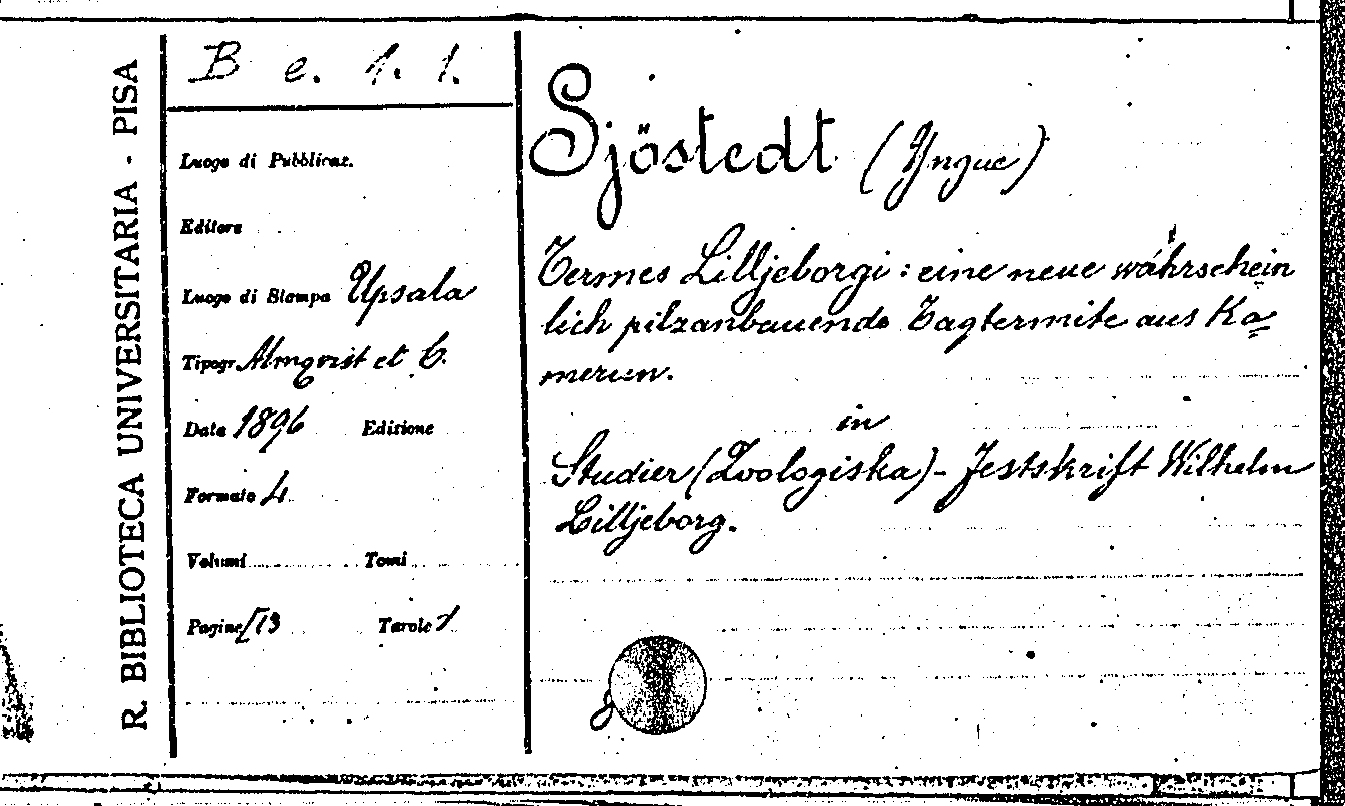 R. BIBLIOTECA UNIVERSITARIA - PISA
B e. 1. 1.
Luogo di Pubblicaz.
Editore
Luogo di Stampa Upsala
Tipogr. Almqvist et C.
Data 1896 Edizione
Formato 4
Volumi Tomi
Pagine 13 Tavole 1
Sjöstedt (Yngve)
Termes Lilljeborgi : eine neue währschein
lich pilzanbauende Tagtermite aus Ka
merun.
in
Studier (Zoologiska) - Festskrift Wilhelm
Lilljeborg.